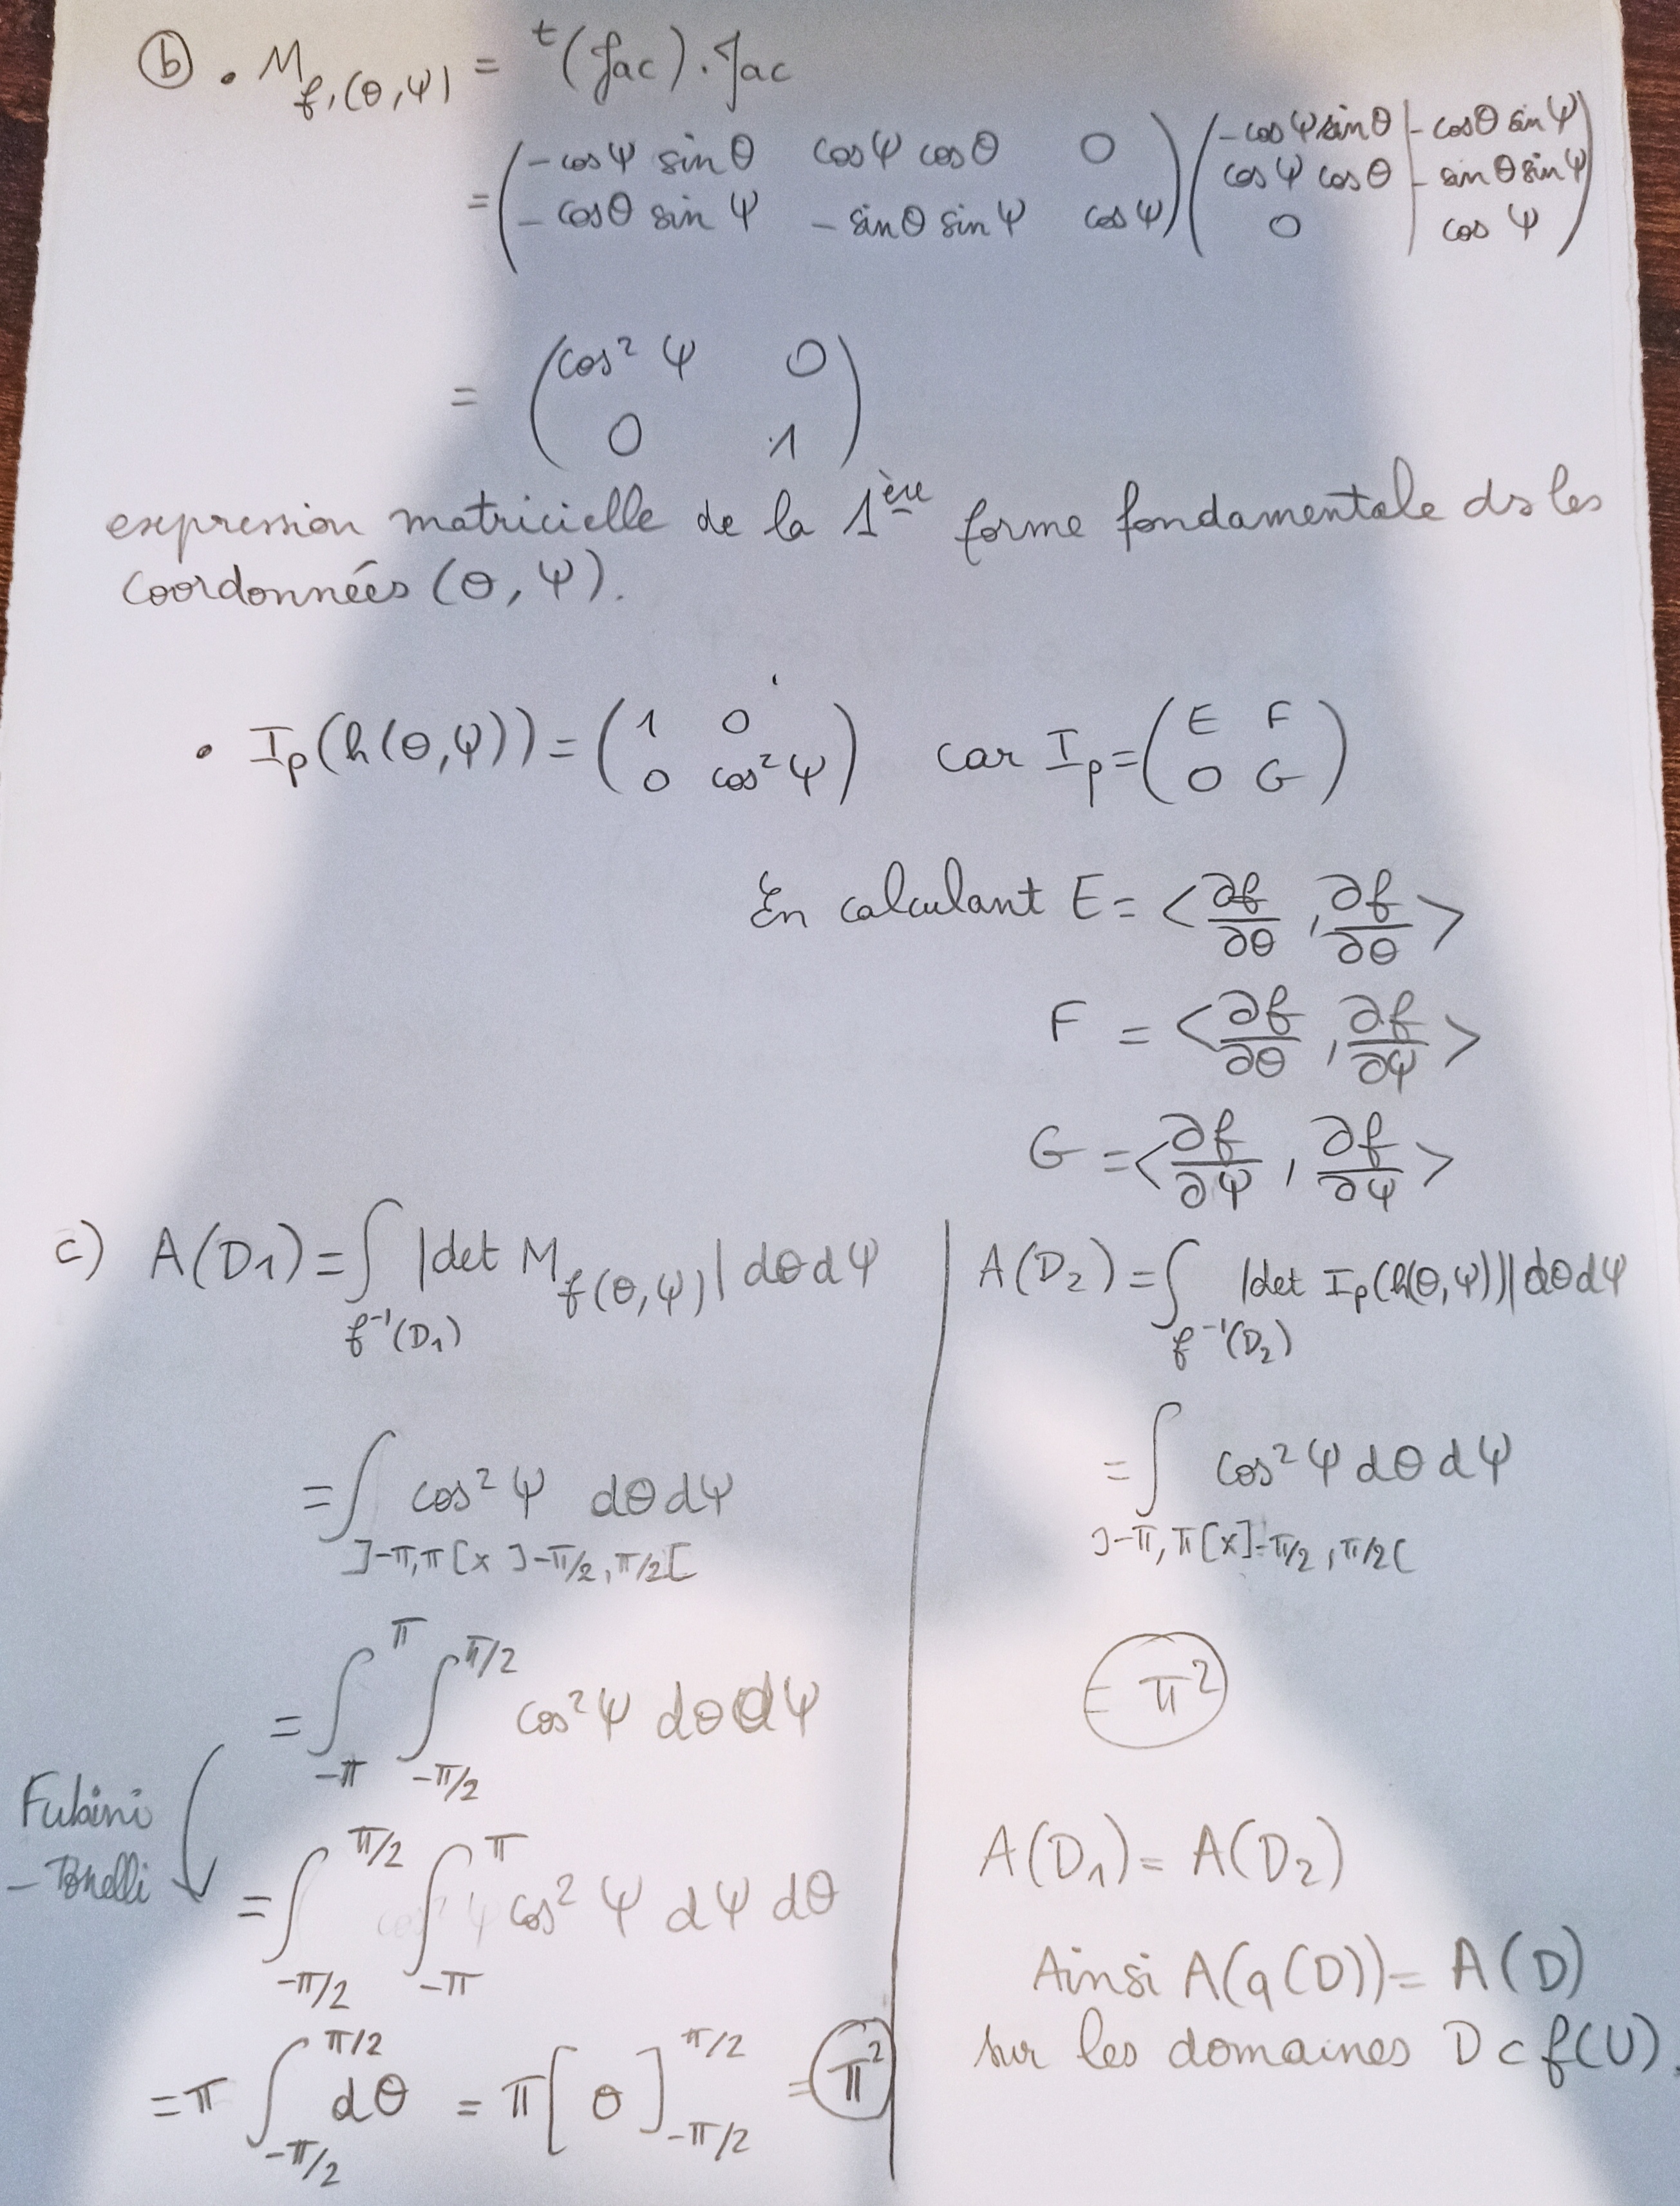 ⓑ . M_{f,(θ,Ψ)} = ᵗ(Jac).Jac
= (-cosΨ sinθ cosΨ cosθ 0 ; -cosθ sinΨ -sinθ sinΨ cosΨ) (-cosΨ sinθ | -cosθ sinΨ ; cosΨ cosθ | -sinθ sinΨ ; 0 | cosΨ)
= (cos²Ψ 0 ; 0 1)
expression matricielle de la 1ère forme fondamentale ds les
coordonnées (θ,Ψ).
• I_p(h(θ,Ψ)) = (1 0 ; 0 cos²Ψ) car I_p = (E F ; O G)
En calculant E = <∂f/∂θ , ∂f/∂θ>
F = <∂f/∂θ , ∂f/∂Ψ>
G = <∂f/∂Ψ , ∂f/∂Ψ>
c) A(D1) = ∫_{f⁻¹(D₁)} |det M_{f(θ,Ψ)}| dθdΨ
= ∫_{]-π,π[x]-π/2,π/2[} cos²Ψ dθdΨ
= ∫_{-π}^{π} ∫_{-π/2}^{π/2} cos²Ψ dθdΨ
Fubini
- Tonelli
= ∫_{-π/2}^{π/2} ∫_{-π}^{π} cos²Ψ dΨ dθ
= π ∫_{-π/2}^{π/2} dθ = π[θ]_{-π/2}^{π/2} = π²
A(D₂) = ∫_{f⁻¹(D₂)} |det I_p(h(θ,Ψ))| dθdΨ
= ∫_{]-π,π[x]-π/2,π/2[} cos²Ψ dθdΨ
= π²
A(D₁) = A(D₂)
Ainsi A(q(D)) = A(D)
sur les domaines D⊂f(U).